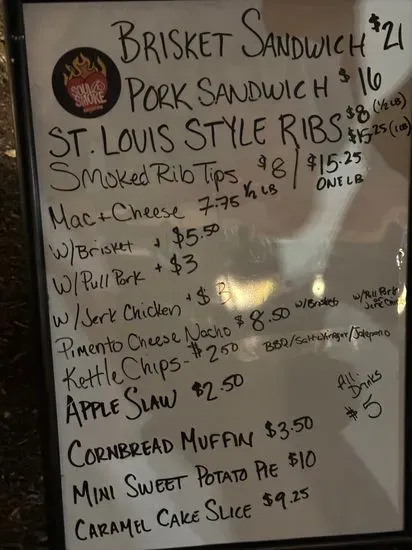 SOUL & SMOKE
BRISKET SANDWICH $21
PORK SANDWICH $16
ST. LOUIS STYLE RIBS $8 (½ LB) $15.25 (1 LB)
SMOKED RIB TIPS $8 ½ LB | $15.25 ONE LB
MAC + CHEESE 7.75
W/BRISKET + $5.50
W/PULL PORK + $3
W/JERK CHICKEN + $3
PIMENTO CHEESE NACHO $8.50 W/BRISKET W/PULL PORK OR JERK
KETTLE CHIPS - $2.50 BBQ/SALT+VINEGAR/JALEPENO
APPLE SLAW $2.50
All. DRINKS $5
CORNBREAD MUFFIN $3.50
MINI SWEET POTATO PIE $10
CARAMEL CAKE SLICE $9.25